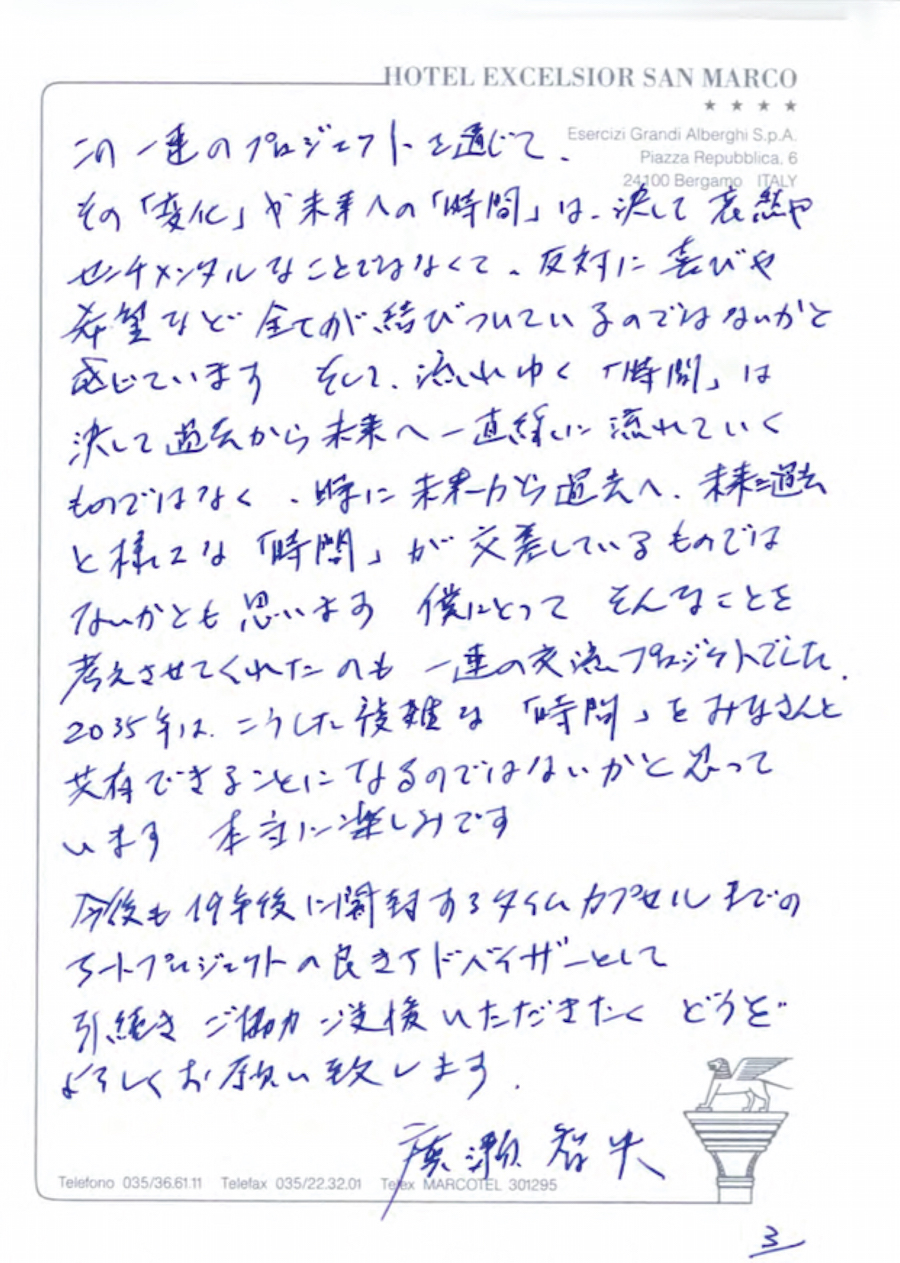 HOTEL EXCELSIOR SAN MARCO
★ ★ ★ ★
Esercizi Grandi Alberghi S.p.A.
Piazza Repubblica, 6
24100 Bergamo ITALY
この一連のプロジェクトを通じて、
その「変化」や未来への「時間」は、決して哀愁や
センチメンタルなことではなくて、反対に喜びや
希望など全てが結びついているのではないかと
感じています そして、流れゆく「時間」は
決して過去から未来へ一直線に流れていく
ものではなく、時に未来から過去へ、未来と過去
と様々な「時間」が交差しているものでは
ないかとも思います 僕にとって そんなことを
考えさせてくれたのも 一連の交流プロジェクトでした.
2035年は、こうした複雑な「時間」をみなさんと
共有できることになるのではないかと思って
います 本当に楽しみです
今後も19年後に開封するタイムカプセルまでの
アートプロジェクトの良きアドバイザーとして
引続き ご協力 ご支援いただきたく どうぞ
よろしくお願い致します.
廣瀬智央
Telefono 035/36.61.11 Telefax 035/22.32.01 Telex MARCOTEL 301295
3